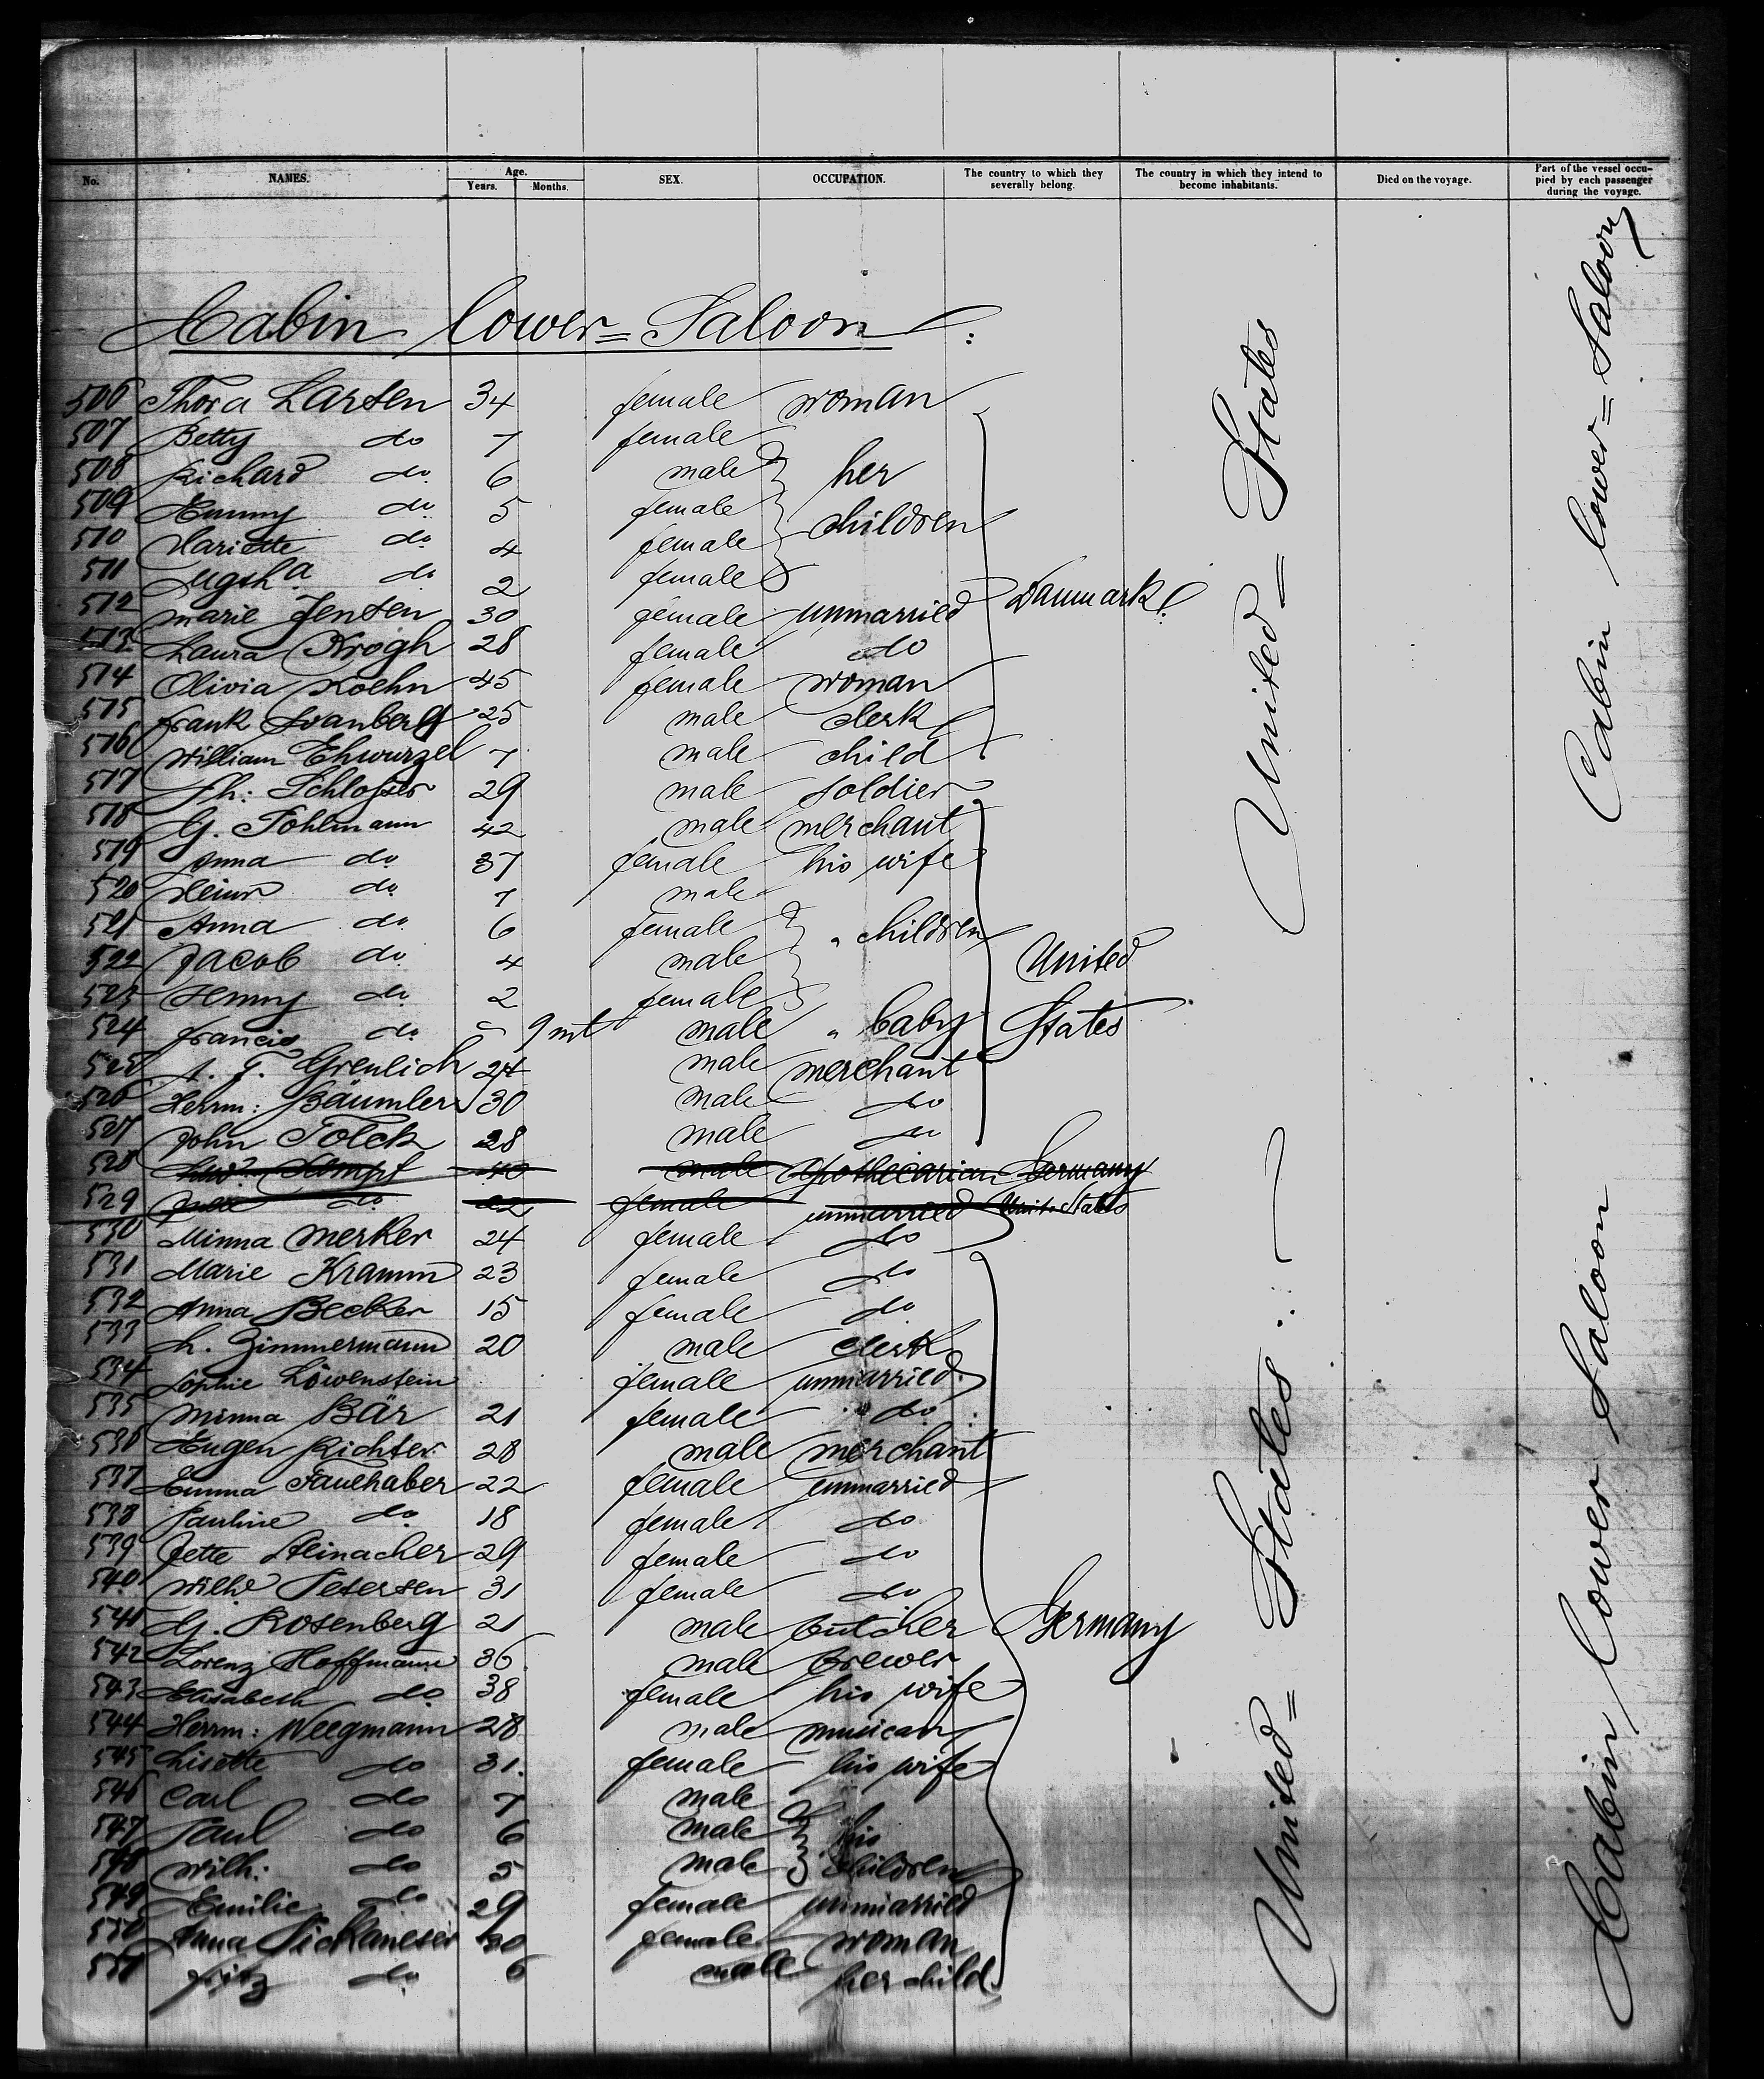 No. NAMES. Age. Years. Months. SEX. OCCUPATION. The country to which they severally belong. The country in which they intend to become inhabitants. Died on the voyage. Part of the vessel occupied by each passenger during the voyage.
Cabin lower=Saloon:
506 Thora Larsen 34 female woman
507 Betty do 7 female
508 Richard do 6 male her
509 Emmy do 5 female children
510 Mariette do 4 female
511 do 2 female
512 Marie Jensen 30 female unmarried Danmark
513 Laura Krogh 28 female do
514 Olivia Koehn 45 female woman
515 Frank Svanberg 25 male clerk
516 William Ehwurzel 7 male child
517 Th: Schlosser 29 male soldier
518 G. Pohlmann 42 male merchant
519 Anna do 37 female his wife
520 Heinr do 7 male
521 Anna do 6 female " children
522 Jacob do 4 male United
523 Henny do 2 female
524 Francis do 9 mt male " baby States
525 A. T. Greulich 24 male merchant
526 Herrm: Bäumler 30 male do
527 John Tolck 28 male do
528 Ludw. Kompf 40 male Apothecarian Germany
529 do 22 female unmarried Unit. States
530 Minna Merker 24 female do
531 Marie Kramm 23 female do
532 Anna Becker 15 female do
533 L. Zimmermann 20 male clerk
534 Sophie Löwenstein female unmarried
535 Minna Bär 21 female do
536 Eugen Richter 28 male merchant
537 Emma Faulhaber 22 female unmarried
538 Pauline do 18 female do
539 Jette Steinacher 29 female do
540 Wilhe Petersen 31 female do
541 G. Rosenberg 21 male butcher Germany
542 Lorenz Hoffmann 36 male brewer
543 Elisabeth do 38 female his wife
544 Herrm: Weegmann 28 male musican
545 Lisette do 31. female his wife
546 Carl do 7 male
547 Paul do 6 male his
548 Wilh: do 5 male children
549 Emilie do 29 female unmarried
550 Anna 30 female woman
551 Fritz do 6 male her child
United=States
United=States
Cabin lower=Saloon
Cabin lower Saloon